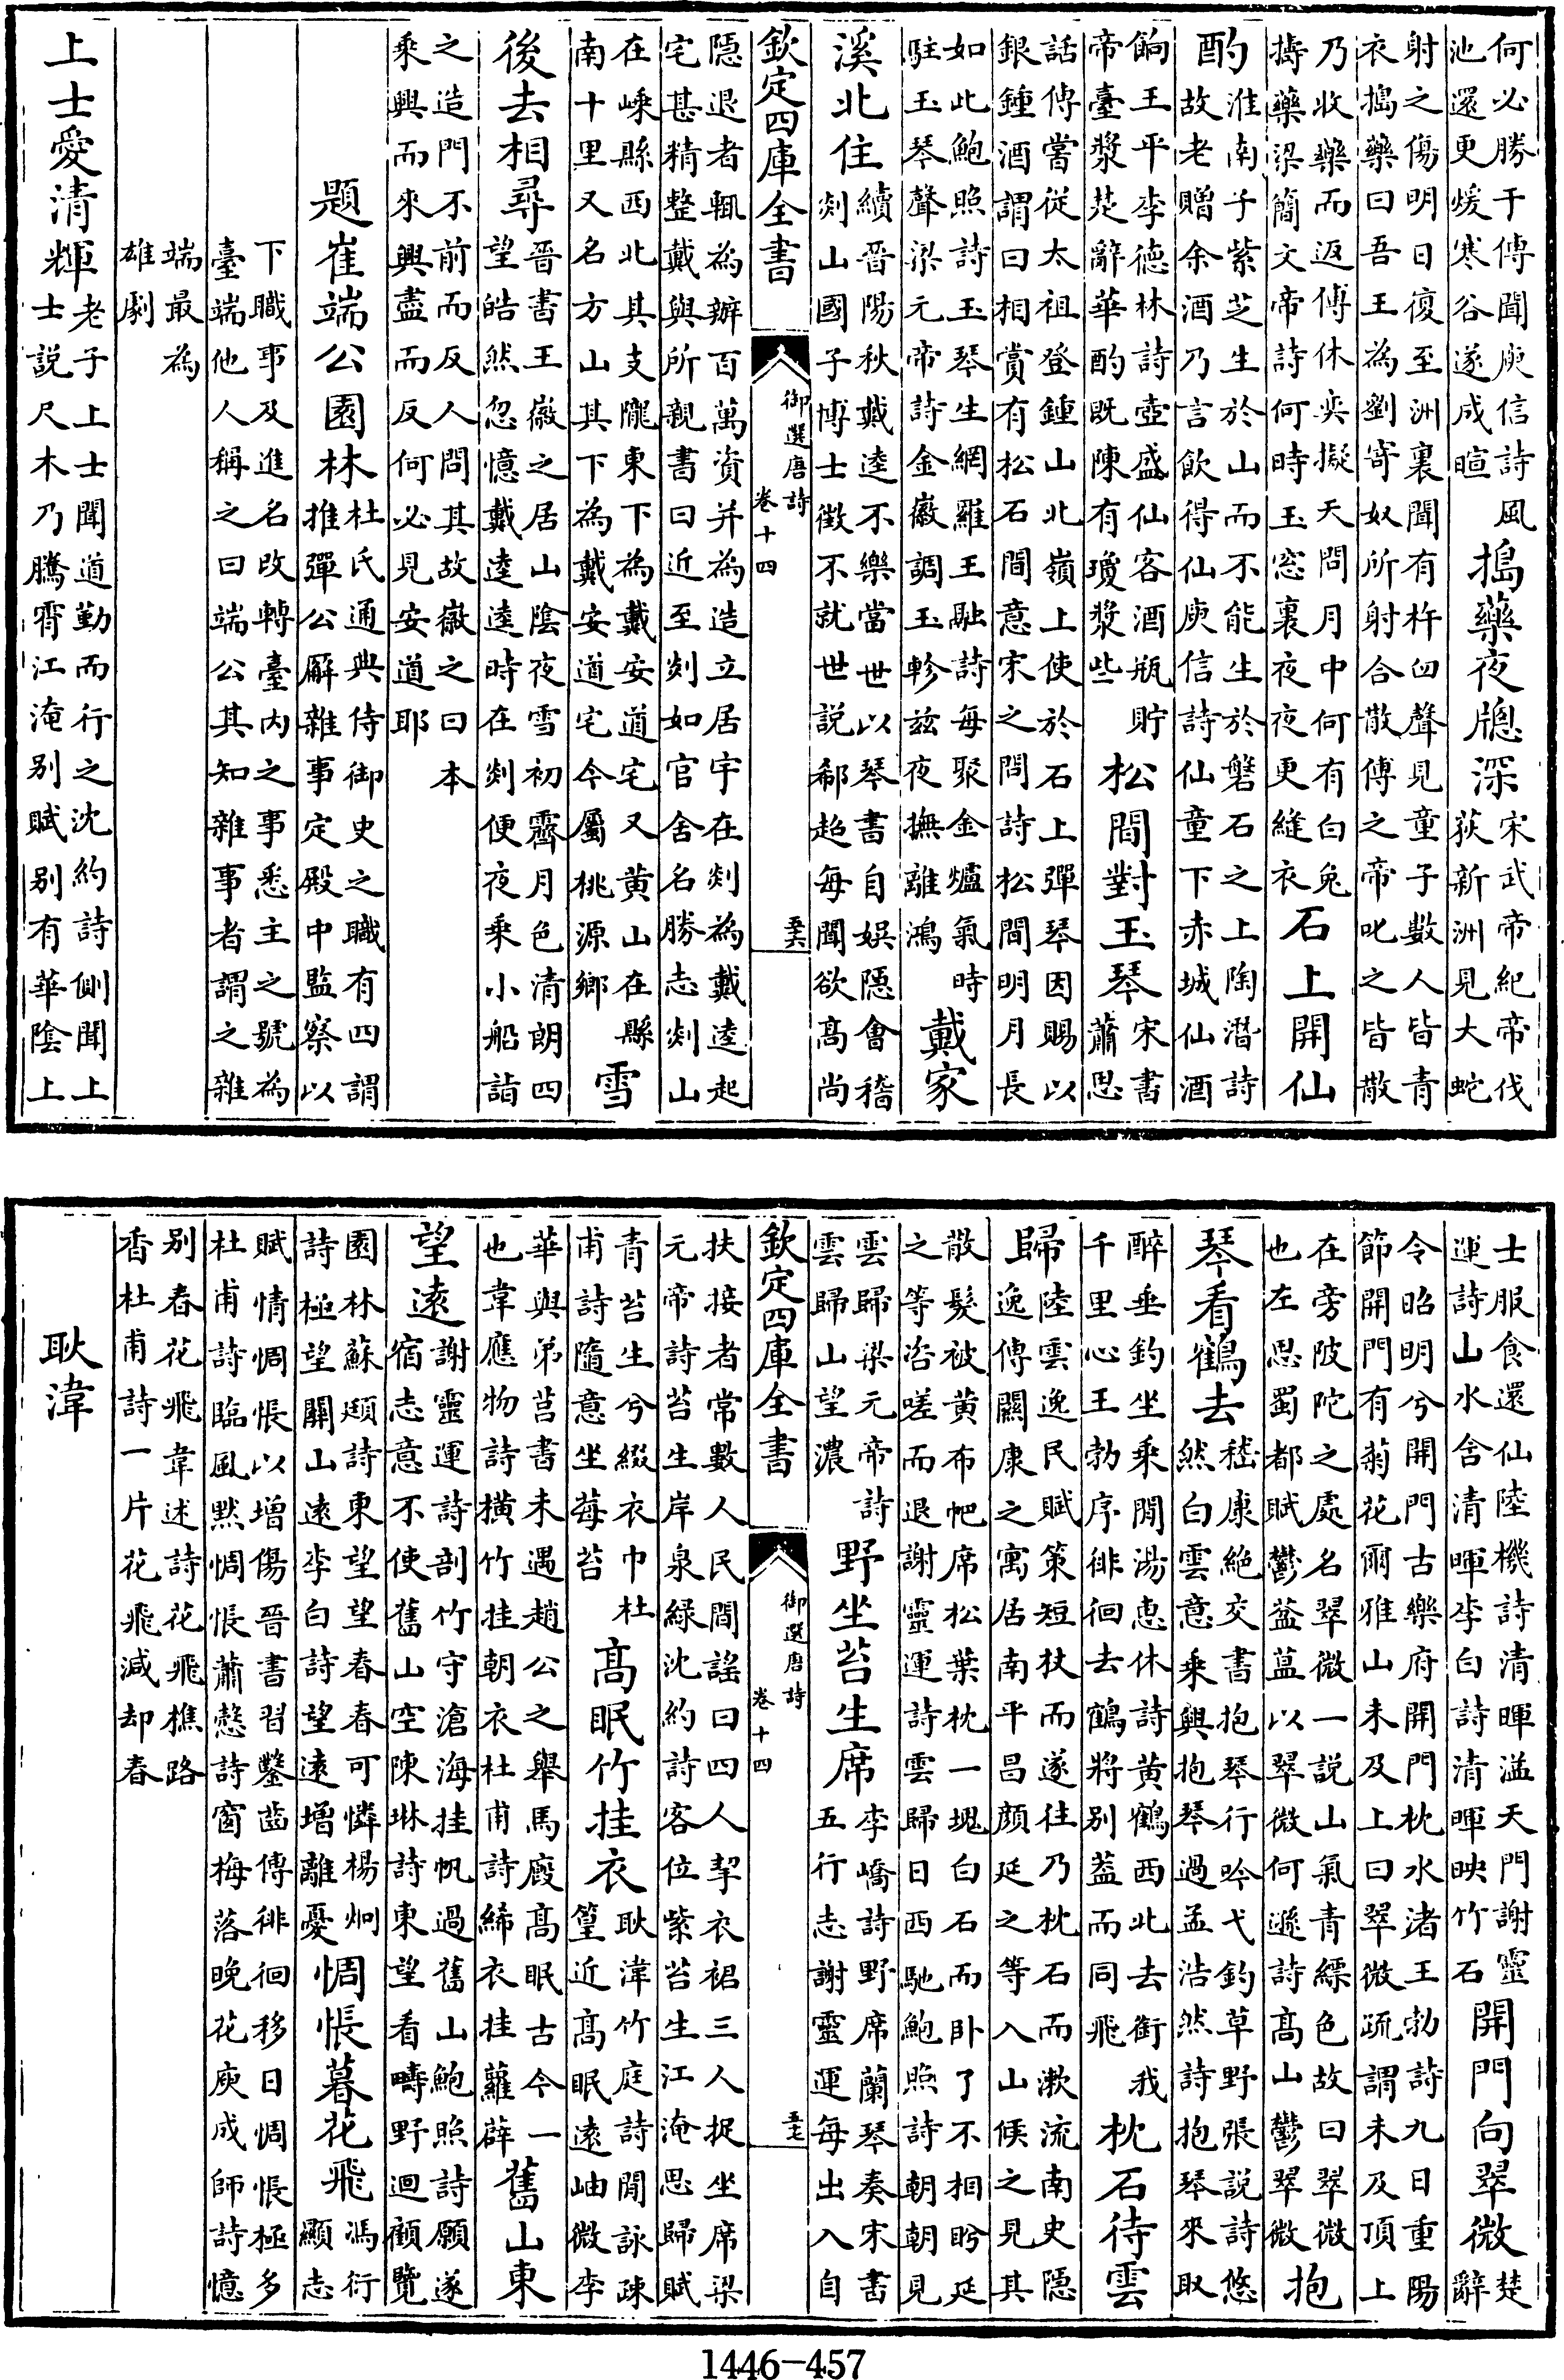 何必勝于傅聞庾信詩風池還更煖寒谷遂成暄搗藥夜牕深宋武帝紀帝伐荻新洲見大蛇
射之傷明日復至洲裏聞有杵臼聲見童子數人皆青衣搗藥曰吾王為劉寄奴所射合散傅之帝叱之皆散
乃收藥而返傅休奕擬天問月中何有白兔擣藥梁簡文帝詩何時玉窓裏夜夜更縫衣石上開仙
酌淮南子紫芝生於山而不能生於磐石之上陶潛詩故老贈余酒乃言飲得仙庾信詩仙童下赤城仙酒
餉王平李德林詩壺盛仙客酒瓶貯帝臺漿楚辭華酌既陳有瓊漿些松間對玉琴宋書蕭思
話傳嘗從太祖登鍾山北嶺上使於石上彈琴因賜以銀鍾酒謂曰相賞有松石間意宋之問詩松間明月長
如此鮑照詩玉琴生網羅王融詩每聚金爐氣時駐玉琴聲梁元帝詩金徽調玉軫茲夜撫離鴻戴家
溪北住續晉陽秋戴逵不樂當世以琴書自娛隱會稽剡山國子博士徵不就世說郗超每聞欲高尚
欽定四庫全書 御選唐詩 卷十四 五六
隱退者輒為辦百萬資并為造立居宇在剡為戴逵起宅甚精整戴與所親書曰近至剡如官舍名勝志剡山
在嵊縣西北其支隴東下為戴安道宅又黃山在縣南十里又名方山其下為戴安道宅今屬桃源鄉雪
後去相尋晉書王徽之居山陰夜雪初霽月色清朗四望皓然忽憶戴逵逵時在剡便夜乘小船詣
之造門不前而反人問其故徽之曰本乘興而來興盡而反何必見安道耶
題崔端公園林杜氏通典侍御史之職有四謂推彈公廨雜事定殿中監察以
下職事及進名改轉臺內之事悉主之號為臺端他人稱之曰端公其知雜事者謂之雜
端最為雄劇
上士愛清輝老子上士聞道勤而行之沈約詩側聞上士說尺木乃騰霄江淹別賦別有華陰上
士服食還仙陸機詩清暉溢天門謝靈運詩山水含清暉李白詩清暉映竹石開門向翠微楚辭
令昭明兮開門古樂府開門枕水渚王勃詩九日重陽節開門有菊花爾雅山未及上曰翠微疏謂未及頂上
在旁陂陀之處名翠微一說山氣青縹色故曰翠微也左思蜀都賦鬱葢蒀以翠微何遜詩高山鬱翠微抱
琴看鶴去嵇康絕交書抱琴行吟弋釣草野張說詩悠然白雲意乘興抱琴過孟浩然詩抱琴來取
醉垂釣坐乘閒湯惠休詩黃鶴西北去銜我千里心王勃序徘徊去鶴將別葢而同飛枕石待雲
歸陸雲逸民賦策短杖而遂往乃枕石而漱流南史隱逸傳關康之寓居南平昌顏延之等入山候之見其
散髮被黃布帊席松葉枕一塊白石而卧了不相眄延之等咨嗟而退謝靈運詩雲歸日西馳鮑照詩朝朝見
雲歸梁元帝詩雲歸山望濃野坐苔生席李嶠詩野席蘭琴奏宋書五行志謝靈運每出入自
欽定四庫全書 御選唐詩 卷十四 五七
扶接者常數人民間謠曰四人挈衣裙三人捉坐席梁元帝詩苔生岸泉綠沈約詩客位紫苔生江淹思歸賦
青苔生兮綴衣巾杜甫詩隨意坐莓苔高眠竹挂衣耿湋竹庭詩閒詠疎篁近高眠遠岫微李
華與弟莒書未遇趙公之舉馬廄高眠古今一也韋應物詩橫竹挂朝衣杜甫詩絺衣挂蘿薜舊山東
望遠謝靈運詩剖竹守滄海挂帆過舊山鮑照詩願遂宿志意不使舊山空陳琳詩東望看疇野迴顧覽
園林蘇頲詩東望望春春可憐楊炯詩極望關山遠李白詩望遠增離憂惆悵暮花飛馮衍顯志
賦情惆悵以增傷晉書習鑿齒傳徘徊移日惆悵極多杜甫詩臨風默惆悵蕭愨詩窗梅落晚花庾成師詩憶
別春花飛韋述詩花飛樵路香杜甫詩一片花飛減却春
耿湋
1446-457